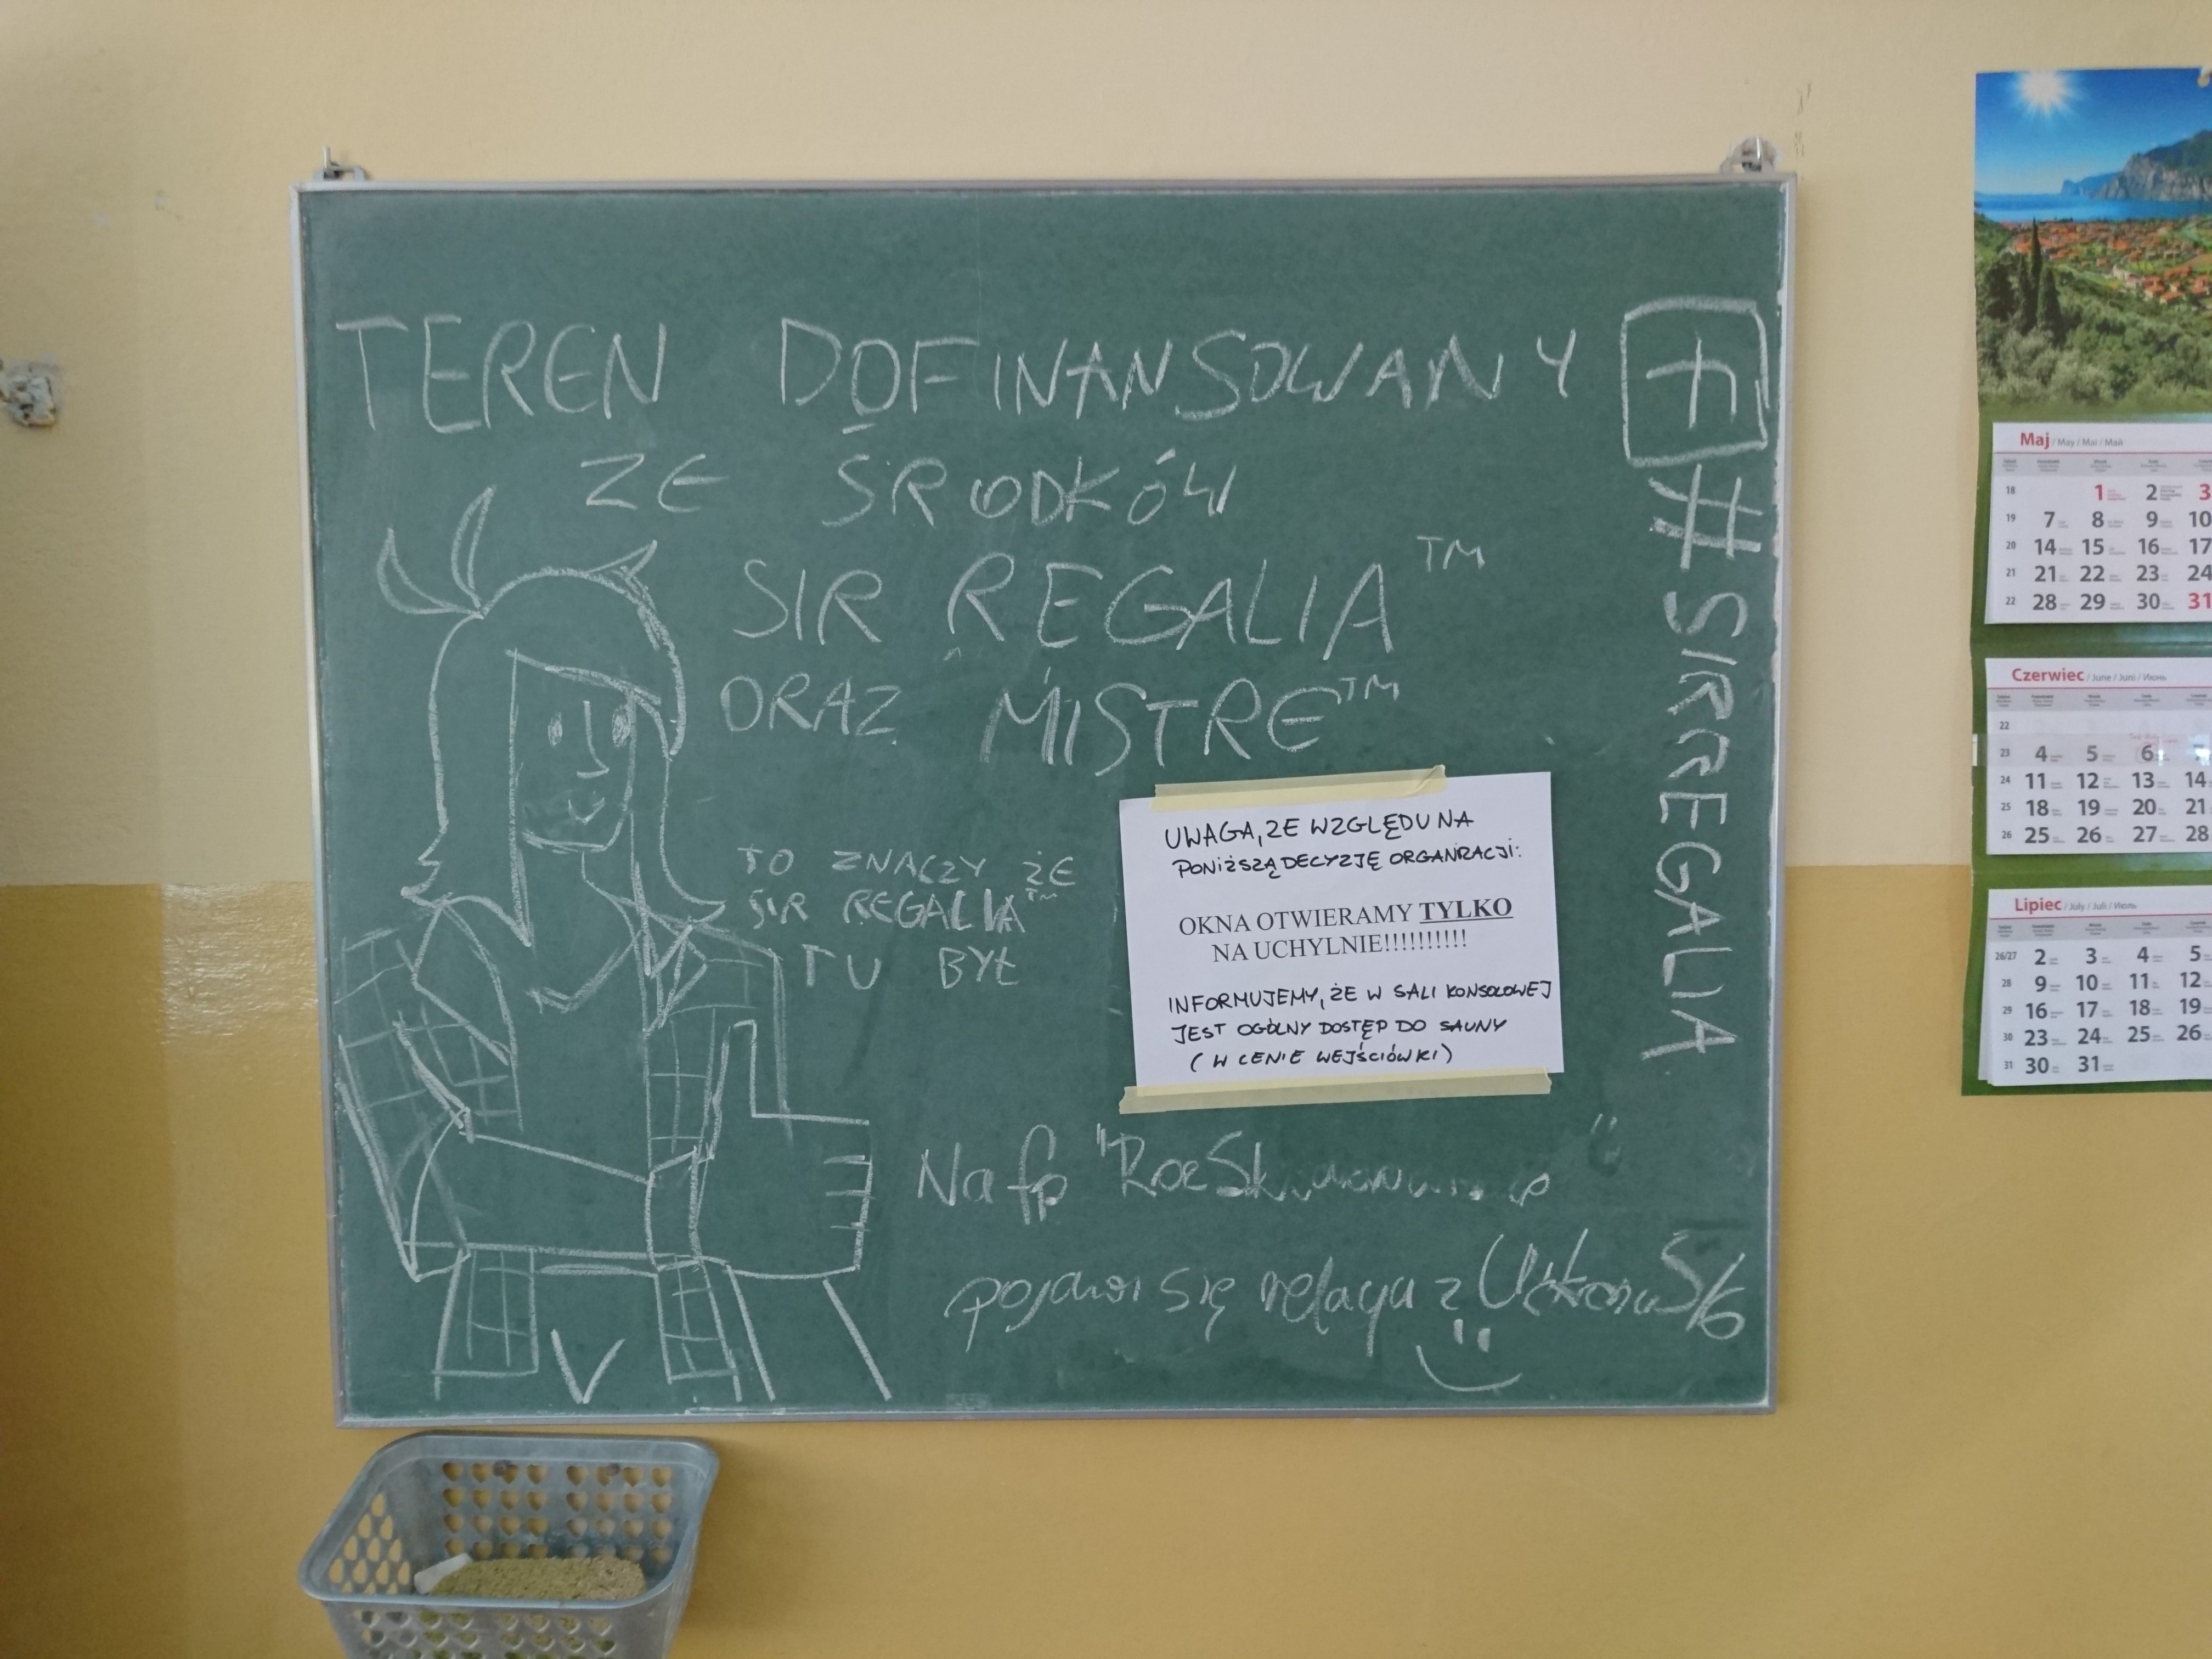 TEREN DOFINANSOWANY
ZE ŚRODKÓW
SIR REGALIA™
ORAZ MISTRE™
TO ZNACZY ŻE
SIR REGALIA™
TU BYŁ
UWAGA, ZE WZGLĘDU NA
PONIŻSZĄ DECYZJĘ ORGANIZACJI:
OKNA OTWIERAMY TYLKO
NA UCHYLNIE!!!!!!!!!!
INFORMUJEMY, ŻE W SALI KONSOLOWEJ
JEST OGÓLNY DOSTĘP DO SAUNY
(W CENIE WEJŚCIÓWKI)
Na fp "
pojawi się relacja z 5/6
f #SIRREGALIA
Maj / May / Mai / Май
18 1 2 3
19 7 8 9 10
20 14 15 16 17
21 21 22 23 24
22 28 29 30 31
Czerwiec / June / Juni / Июнь
22
23 4 5 6
24 11 12 13 14
25 18 19 20 21
26 25 26 27 28
Lipiec / July / Juli / Июль
26/27 2 3 4 5
28 9 10 11 12
29 16 17 18 19
30 23 24 25 26
31 30 31